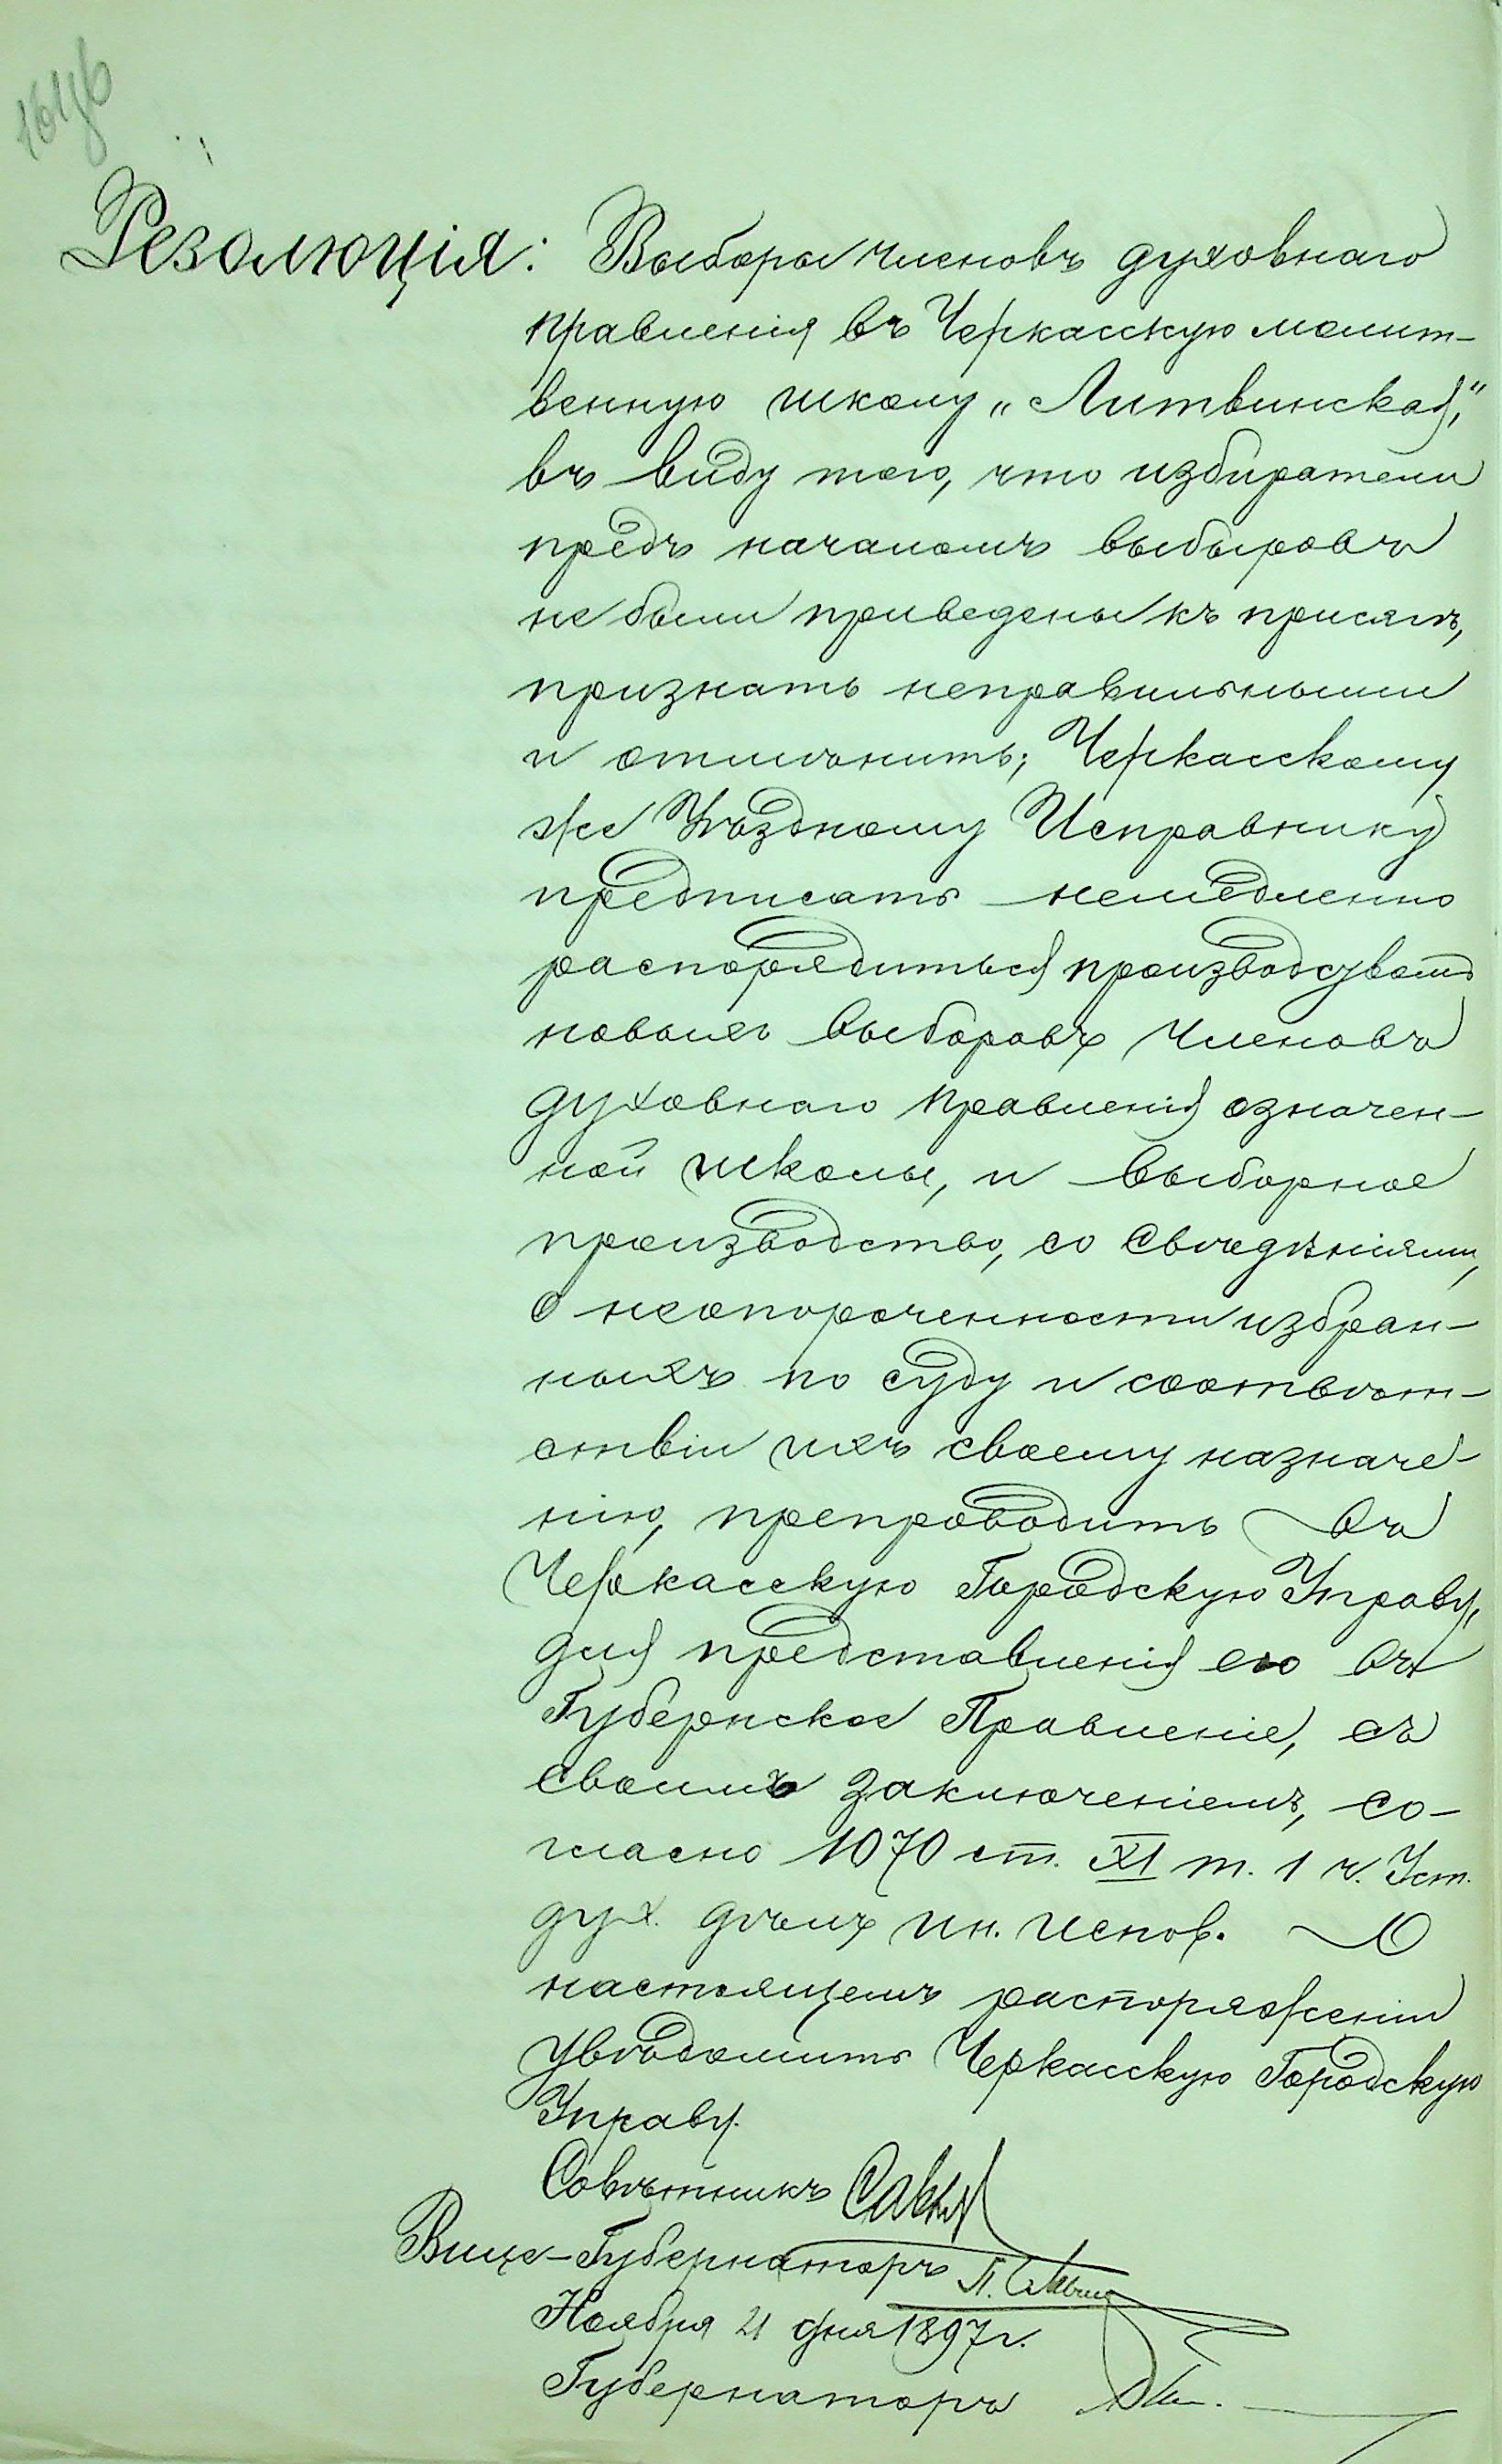 Резолюція: Выборы членовъ духовнаго
правленія въ Черкасскую молит-
венную школу „Литвинская“,
въ виду того, что избиратели
предъ началомъ выборовъ
не были приведены къ присягѣ,
признать неправильными
и отмѣнить; Черкасскому
же Уѣздному Исправнику
предписать немедленно
распорядиться производствомъ
новыхъ выборовъ членовъ
духовнаго правленія означен-
ной школы, и выборное
производство, со свѣдѣніями,
о неопороченности избран-
ныхъ по суду и соотвѣт-
ствіи ихъ своему назначе-
нію, препроводить въ
Черкасскую Городскую Управу,
для представленія его въ
Губернское Правленіе, съ
своимъ заключеніемъ, со-
гласно 1070 ст. XI т. 1 ч. Уст.
дух. дѣлъ ин. испов. О
настоящемъ распоряженіи
увѣдомить Черкасскую Городскую
Управу.
Совѣтникъ
Вице-Губернаторъ
Ноября 21 дня 1897 г.
Губернаторъ